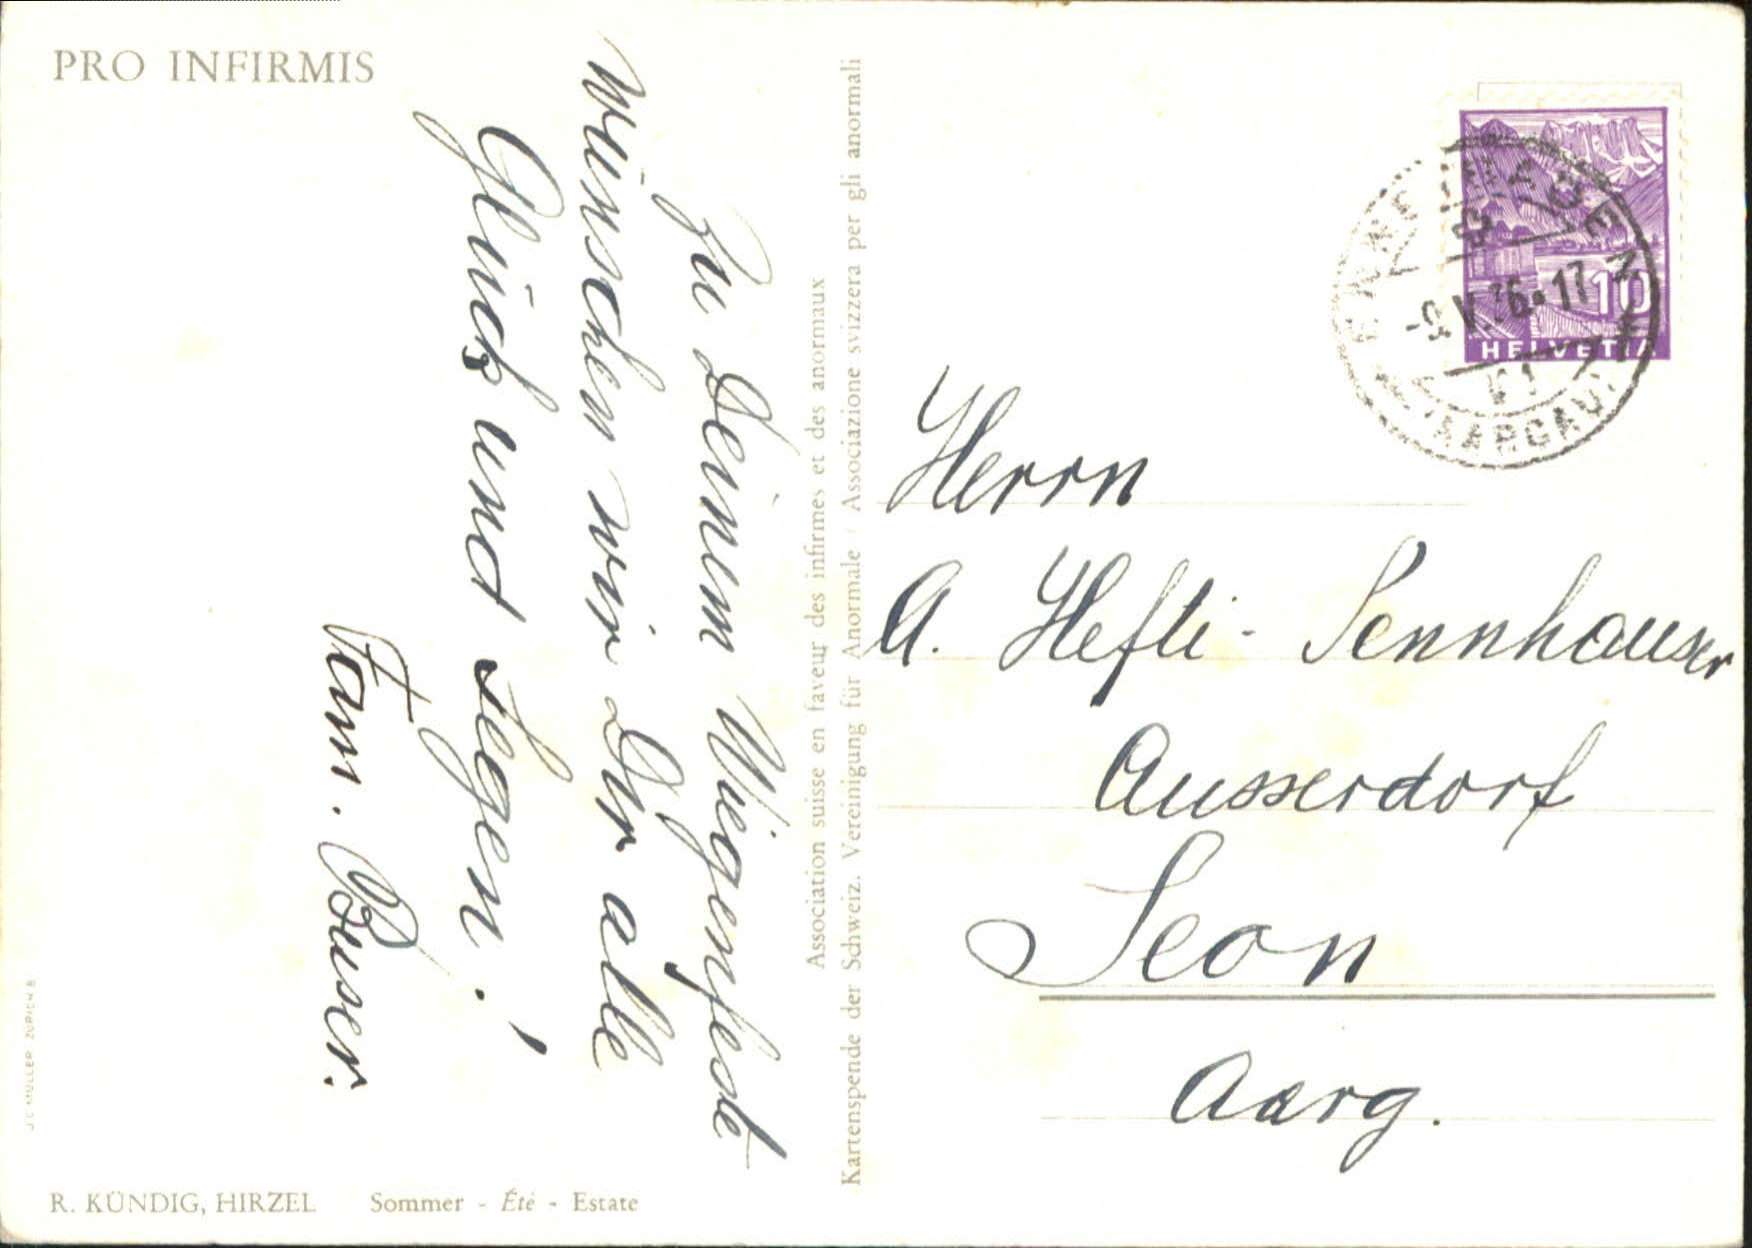 PRO INFIRMIS
Zu Deinem Wiegenfeste
wünschen wir Dir alle
Glück und Segen!
Fam. Buser.
J.C. MÜLLER ZÜRICH 8
R. KÜNDIG, HIRZEL Sommer - Été - Estate
Association suisse en faveur des infirmes et des anormaux
Kartenspende der Schweiz. Vereinigung für Anormale / Associazione svizzera per gli anormali
HELVETIA
10
-9.V.36.-17
(AARGAU)
Herrn
A. Hefti-Sennhauser
Ausserdorf
Seon
Aarg.